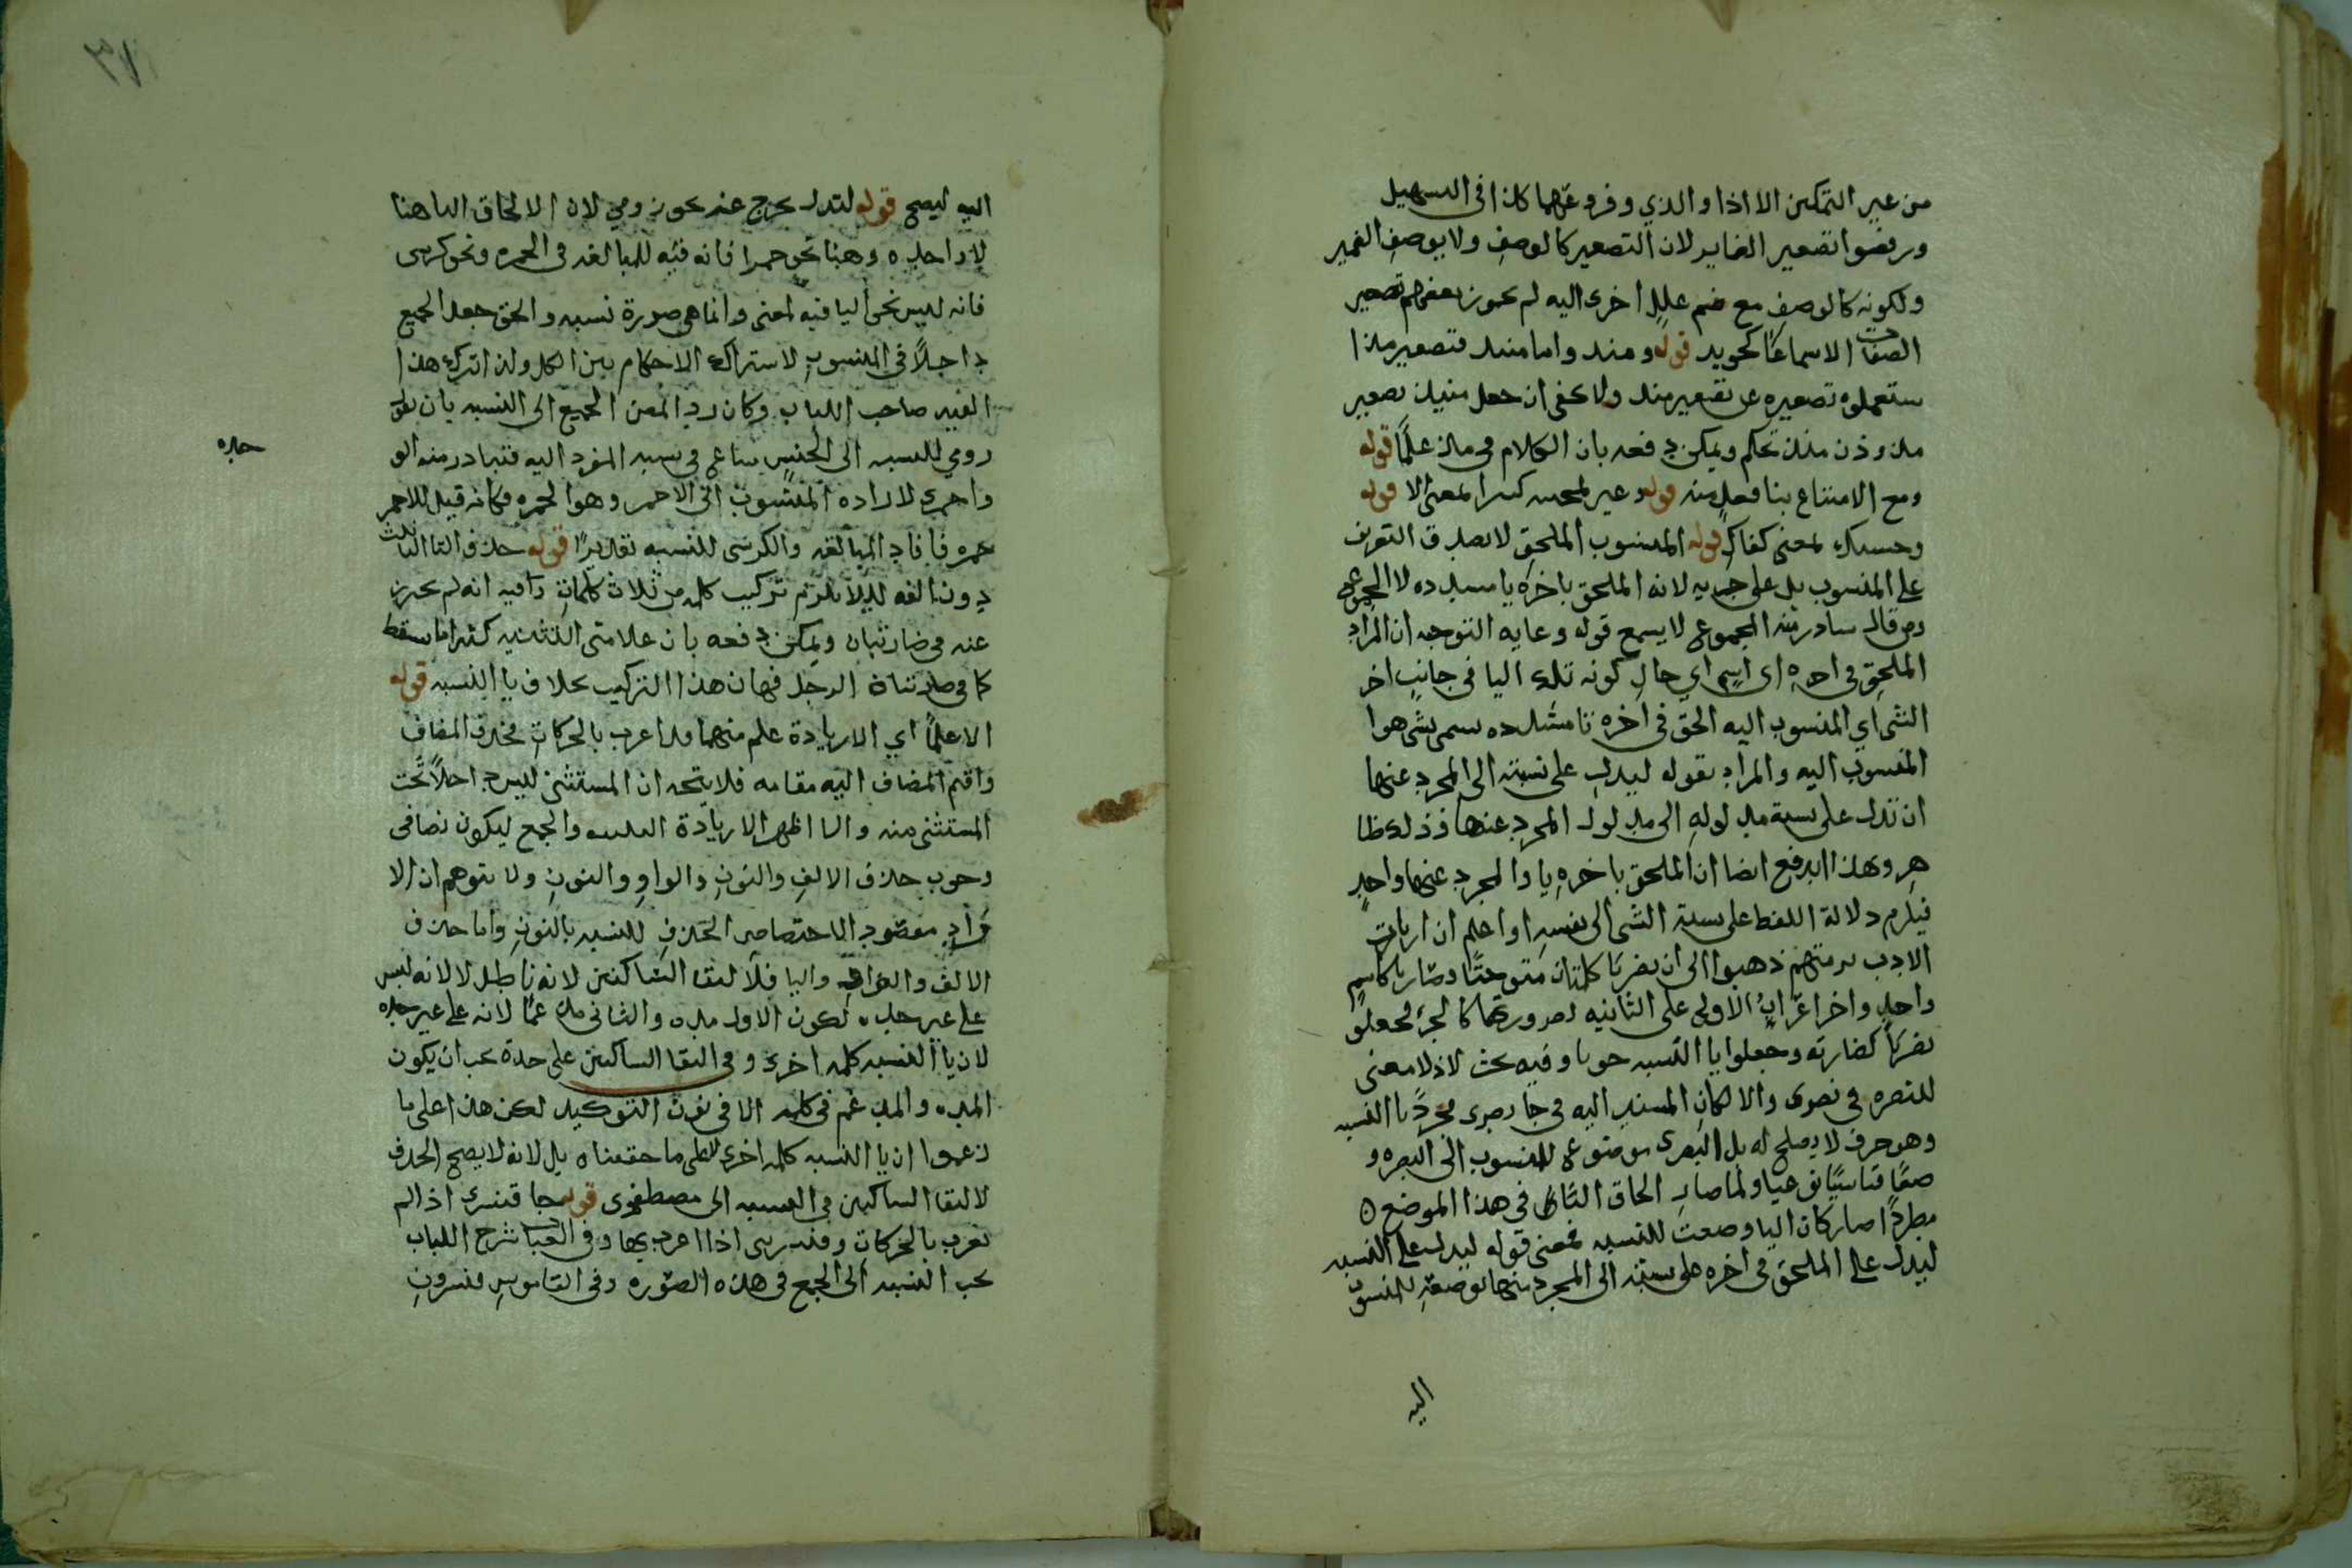 من غير التمكين الا اذا والذي وفروعهما كذا في التسهيل
ورفضوا تصغير الضماير لان التصغير كالوصف ولا يوصف الضمير
ولكونه كالوصف مع ضم علل اخرى اليه لم يجوز بعضهم تصغير
الصفات الا سماعا كحويد قوله ومنذ واما منذ فتصغير مذ
ستعملوه تصغيره عن تصغير منذ ولا يخفى ان جعل منيذ تصغير
مذ دون منذ تحكم ويمكن دفعه بان الكلام في مذ علمًا قوله
ومع الامتناع بنا فعل منه قوله وغير لمجيه كثيرا لمعنى الا قوله
وحسبك لمعنى كفاك قوله المنسوب الملحق لا يصدق التعريف
على المنسوب بل على جزيه لانه الملحق باخره يا مشدده لا المجموع
ومن قال يتبادر منه المجموع لا يسمع قوله وغايه التوجه ان المراد
الملحق في اخره اى اسم اي حال كونه تلك اليا في جانب اخر
الشى اي المنسوب اليه الحق في اخره يا مشدده سمى بشى هوا
المنسوب اليه والمراد بقوله ليدل على نسبته الى المجرد عنها
ان تدل على نسبة مدلوله الى مدلول المجرد عنها وذلك ظا
هر وبهذا اندفع ايضا ان الملحق باخره يا والمجرد عنها واحد
فيلزم دلالة اللفظ على نسبة الشى الى نفسه او اعلم ان ارباب
الادب برمتهم ذهبوا الى ان بصريا كلمتان متوحدتا وصار يا كاسم
واحد واخر اعراب الاولى على الثانيه لصرورتها كالجزء فجعلوا
بصريا كضاربة وجعلوا يا النسبه حرفا وفيه بحث لاذ لا معنى
للبصره في بصرى والا لكان المسند اليه في جا بصرى مجرد يا النسبه
وهو حرف لا يصلح له بل البصرى موضوع للمنسوب الى البصره و
صفا قياسيا نوعيا ولما صار الحاق التا في هذا الموضع ٥
مطردا صار كان اليا وضعت للنسبه فمعنى قوله ليدل على النسبه
ليدل على الملحق في اخره على نسبته الى المجرد منها لو ضعه للمنسوب
اليه
٣٧
اليه ليصح قوله لتدل يخرج عنه نحو زومي لان الالحاق اليا هنا
لا واحديه وهنا نحو حمرا فانه فيه للمبالغه في الحمره ونحو كرسى
فانه ليس نجى اليا فيه لمعنى وانما هى صورة نسبه والحق جعل الجميع
داخلًا في المنسوب لاشتراك الاحكام بين الكل ولذا ترك هذا
القيد صاحب اللباب وكان رد المصن الجميع الى النسبه بان نقول
رومي للنسبه الى الجنس شاع في نسبه المفرد اليه فتبادر منه الو
واحمرى لاراده المنسوب الى الاحمر وهو الحمره فكانه قيل للاحمر
حمره فافاد المبالغه والكرسى للنسبه تقديرًا قوله حذف التا الثالث
دون الفه لئلا يلزم تركيب كلمه من ثلاث كلمات وافيه انه لم يحترز
عنه في ضاربتان ويمكن دفعه بان علامتى التثنيه كثيرا ما سقط
كما في ضربتنا الرجل فهان هذا التركيب بخلاف يا النسبه قوله
الا علمًا اي الا زيادة علم منهما وقد اعرب بالحركات فحذف المضاف
واقيم المضاف اليه مقامه فلا يتجه ان المستثنى ليس داخلًا تحت
المستثنى منه والا اظهر الا زيادة التثنيه والجمع ليكون نصا في
وجوب حذف الالف والنون والواو والنون ولا يتوهم ان الا
فراد مقصود الاختصاص الحذف للنسبه بالنون واما حذف
الالف والواو واليا فلالتقا الساكنين لانه باطل لا لانه ليس
على غير حده لكون الاول مده والثاني مدغما لانه على غير حده
لان يا النسبه كلمه اخرى وفي التقا الساكنين على حدة يجب ان يكون
المده والمدغم في كلمه الا في نون التوكيد لكن هذا على ما
زعموا ان يا النسبه كلمه اخرى لا على ما حققناه بل لانه لا يصح الحذف
لالتقا الساكنين في النسبه الى مصطفوى قوله جا قنسرى اذا لم
تعرب بالحركات وقنسرينى اذا اعرب بها وفي العباب شرح اللباب
يجب النسبه الى الجمع في هذه الصوره وفي القاموس قنسرون
حده